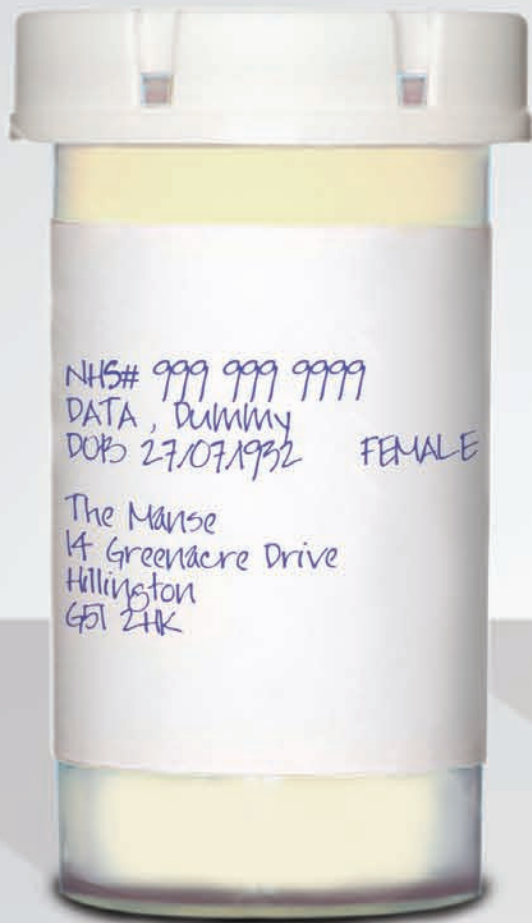 NHS# 999 999 9999
DATA, Dummy
DOB 27/07/1932 FEMALE
The Manse
14 Greenacre Drive
Hillington
G51 2HK